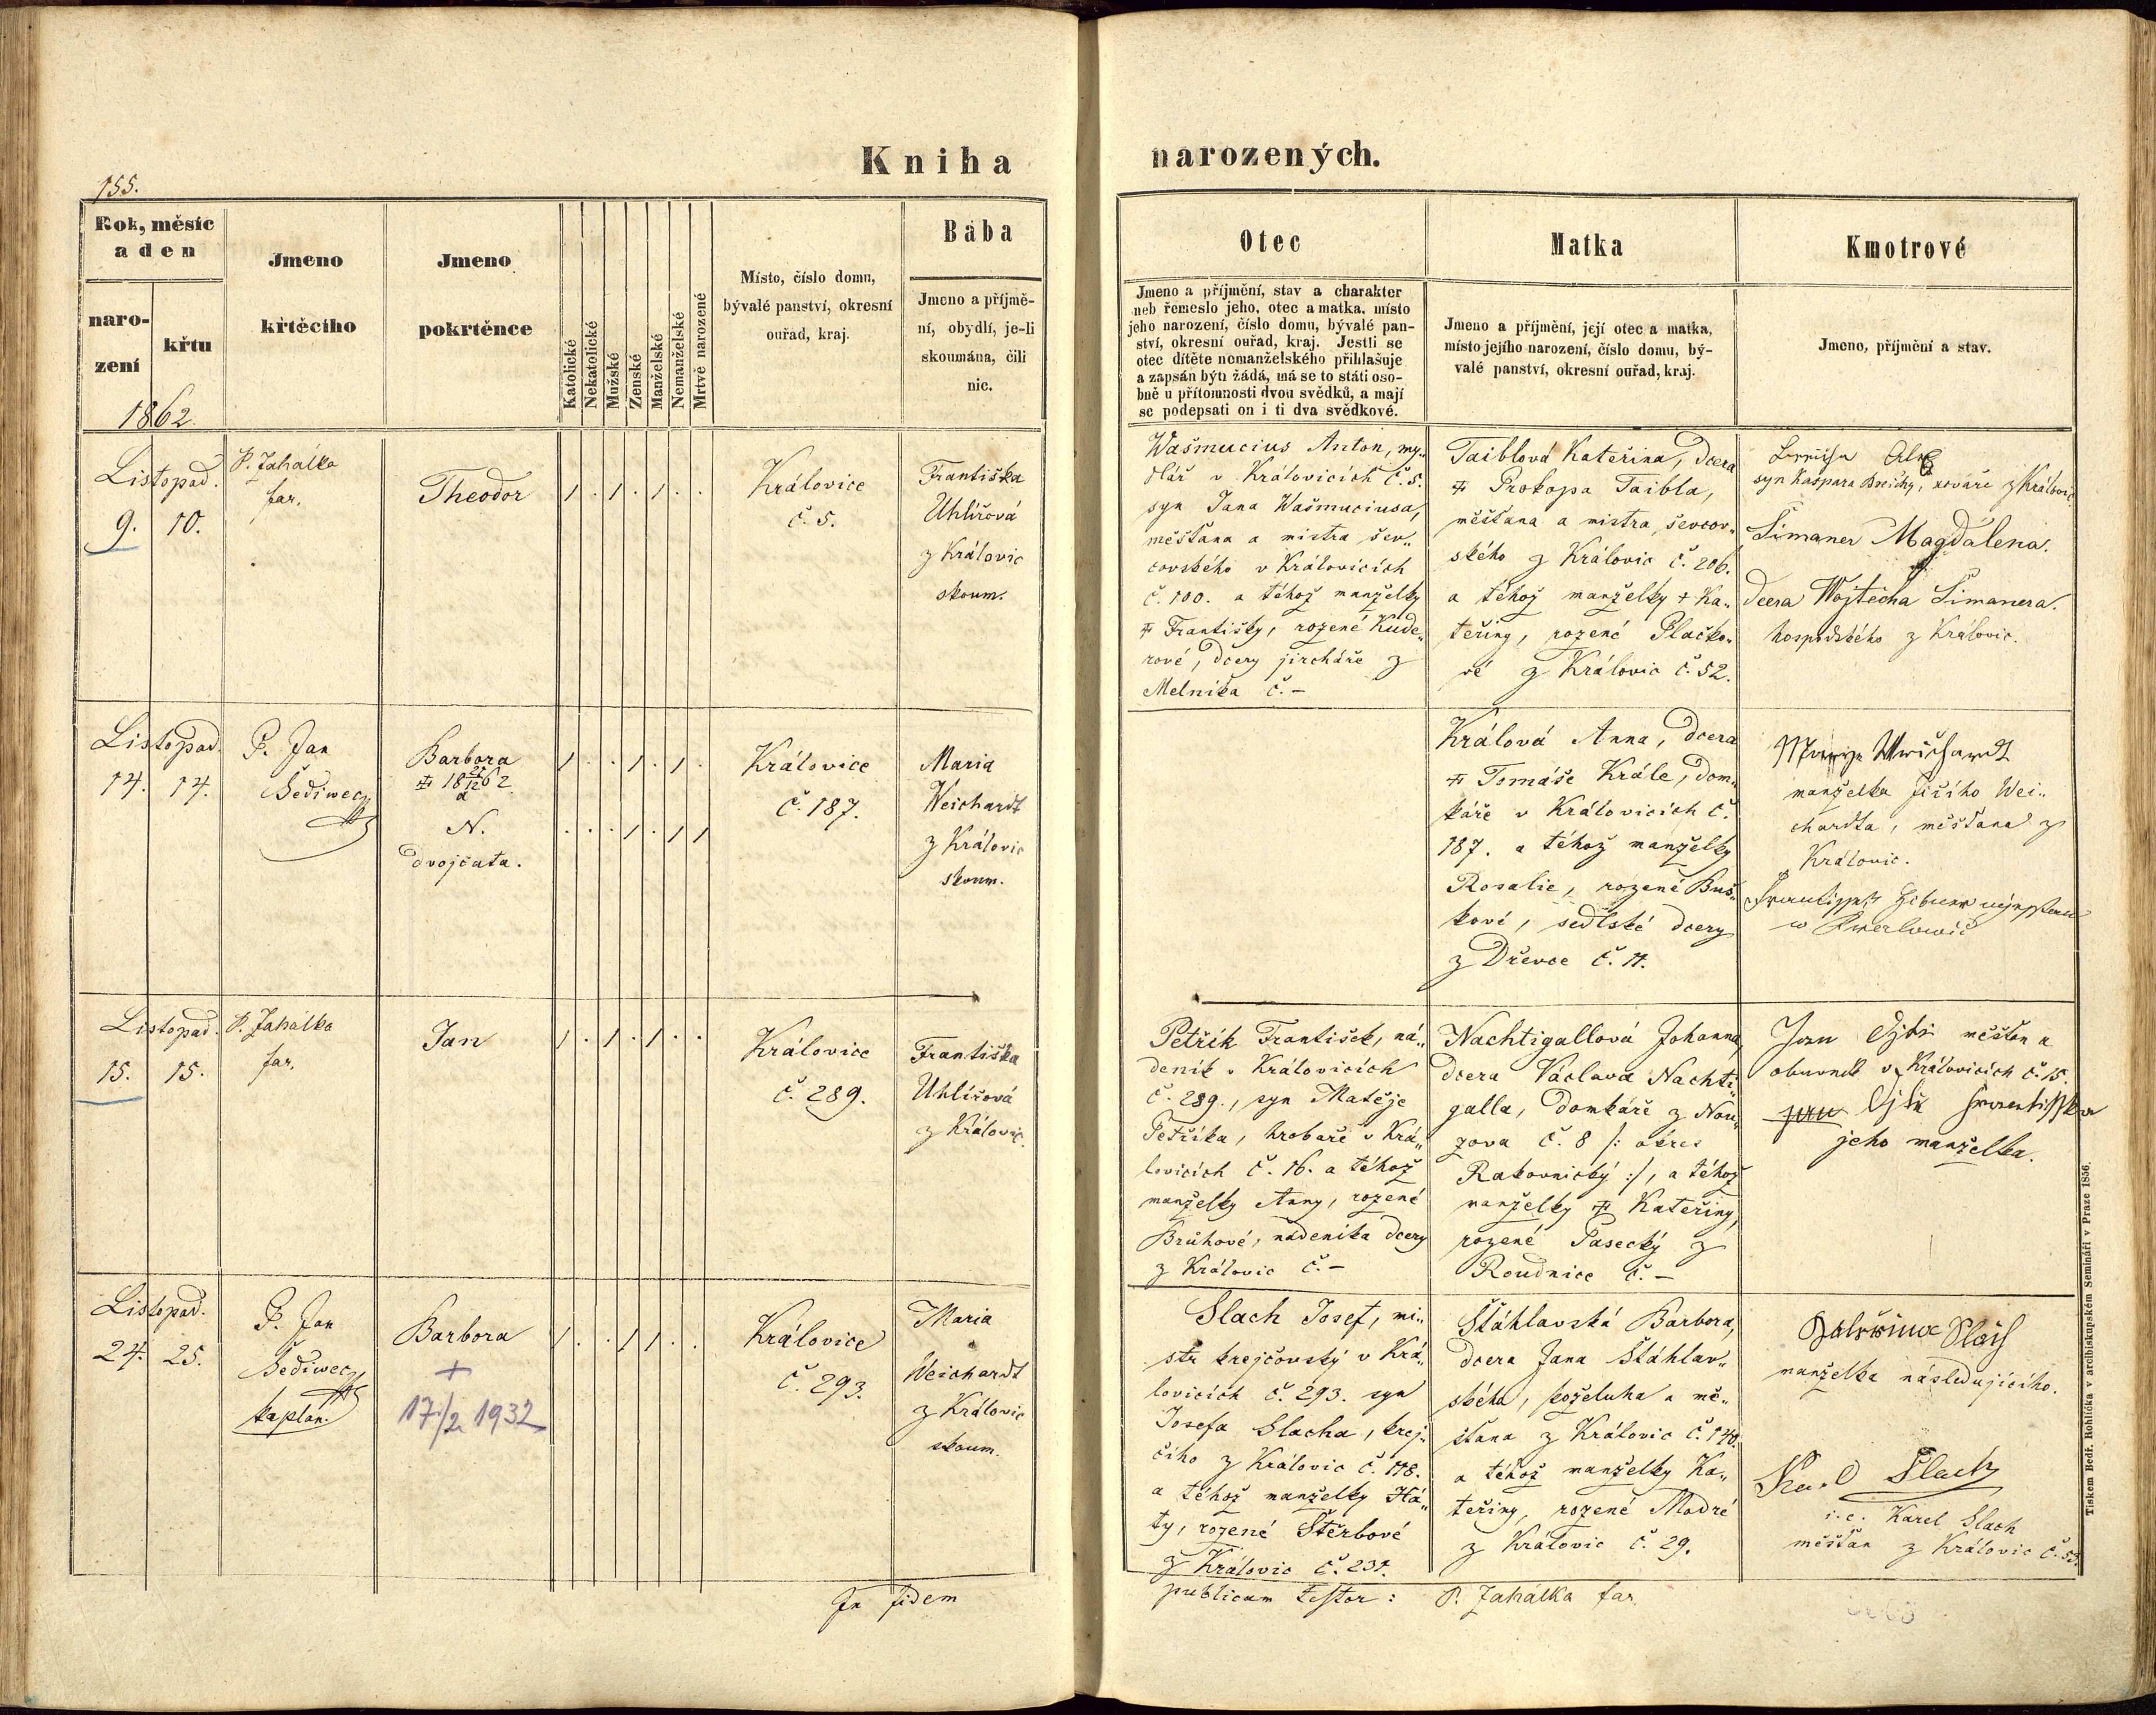 155.
Kniha narozených.
Rok, měsíc
a den
naro-
zení
křtu
1862.
Jmeno
křtěcího
Jmeno
pokrtěnce
Katolické
Nekatolické
Mužské
Ženské
Manželské
Nemanželské
Mrtvě narozené
Místo, číslo domu,
bývalé panství, okresní
ouřad, kraj.
Bába
Jmeno a příjmě-
ní, obydlí, je-li
skoumána, čili
nic.
Otec
Jmeno a příjmění, stav a charakter
neb řemeslo jeho, otec a matka, místo
jeho narození, číslo domu, bývalé pan-
ství, okresní ouřad, kraj. Jestli se
otec dítěte nemanželského přihlašuje
a zapsán býti žádá, má se to státi oso-
bně u přítomnosti dvou svědků, a mají
se podepsati on i ti dva svědkové.
Matka
Jmeno a příjmění, její otec a matka,
místo jejího narození, číslo domu, bý-
valé panství, okresní ouřad, kraj.
Kmotrové
Jmeno, příjmění a stav.
Listopad.
9. 10.
P. Zahálka
far.
Theodor
Královice
č. 5.
Františka
Uhlířová
z Královic
skoum.
Wašmucius Anton, my-
dlář v Královicích č. 5.
syn Jana Wašmuciusa,
měšťana a mistra šev-
covského v Královicích
č. 100. a téhož manželky
Františky, rozené Kude-
rové, dcery jircháře z
Melníka č. –
Taiblová Kateřina, dcera
Prokopa Taibla,
měšťana a mistra ševcov-
ského z Královic č. 206.
a téhož manželky + Ka-
teřiny, rozené Plačko-
vé z Královic č. 52.
syn Kašpara z Královic
Šimaner Magdalena.
dcera Wojtěcha Šimanera.
hospodského z Královic.
Listopad.
14. 14.
P. Jan
Šediwecz
Barbora
a
N.
dvojčata.
Královice
č. 187.
Maria
Weichardt
z Královic
skoum.
Králová Anna, dcera
Tomáše Krále, dom-
káře v Královicích č.
187. a téhož manželky
Rosalie, rozené Buš-
kové, sedlské dcery
z Dřevce č. 11.
manželka Jiřího Wei-
chardta, měšťana z
Královic.
Listopad.
15. 15.
P. Zahálka
far.
Jan
Královice
č. 289.
Františka
Uhlířová
z Královic.
Petřík František, ná-
deník v Královicích
č. 289., syn Matěje
Petříka, hrobaře v Krá-
lovicích č. 16. a téhož
manželky Anny, rozené
Brůhové, nádeníka dcery
z Královic č. –
Nachtigallová Johanna,
dcera Václava Nachti-
galla, domkáře z Nou-
zova č. 8 /: okres
Rakovnický :/, a téhož
manželky Kateřiny,
rozené Pasecký z
Roudnice č. –
Jan měšťan a
obuvník v Královicích č. 15.
jeho manželka.
Listopad.
24. 25.
P. Jan
Šediwecz
kaplan.
Barbora
+
17/2 1932
Královice
č. 293.
Maria
Weichardt
z Královic
skoum.
Slach Josef, mi-
str krejčovský v Krá-
lovicích č. 293. syn
Josefa Slacha, krej-
čího z Královic č. 178.
a téhož manželky Há-
ty, rozené Štěrbové
z Královic č. 237.
Šťáhlavská Barbora,
dcera Jana Šťáhlav-
ského, koželuha a mě-
šťana z Královic č. 140.
a téhož manželky Ka-
teřiny, rozené Modré
z Královic č. 29.
manželka následujícího.
Slach
i. e. Karel Slach
měšťan z Královic č. 53.
In fidem publicam testor: P. Zahálka far.
Tiskem Bedř. Rohlíčka v arcibiskupském Semináři v Praze 1856.